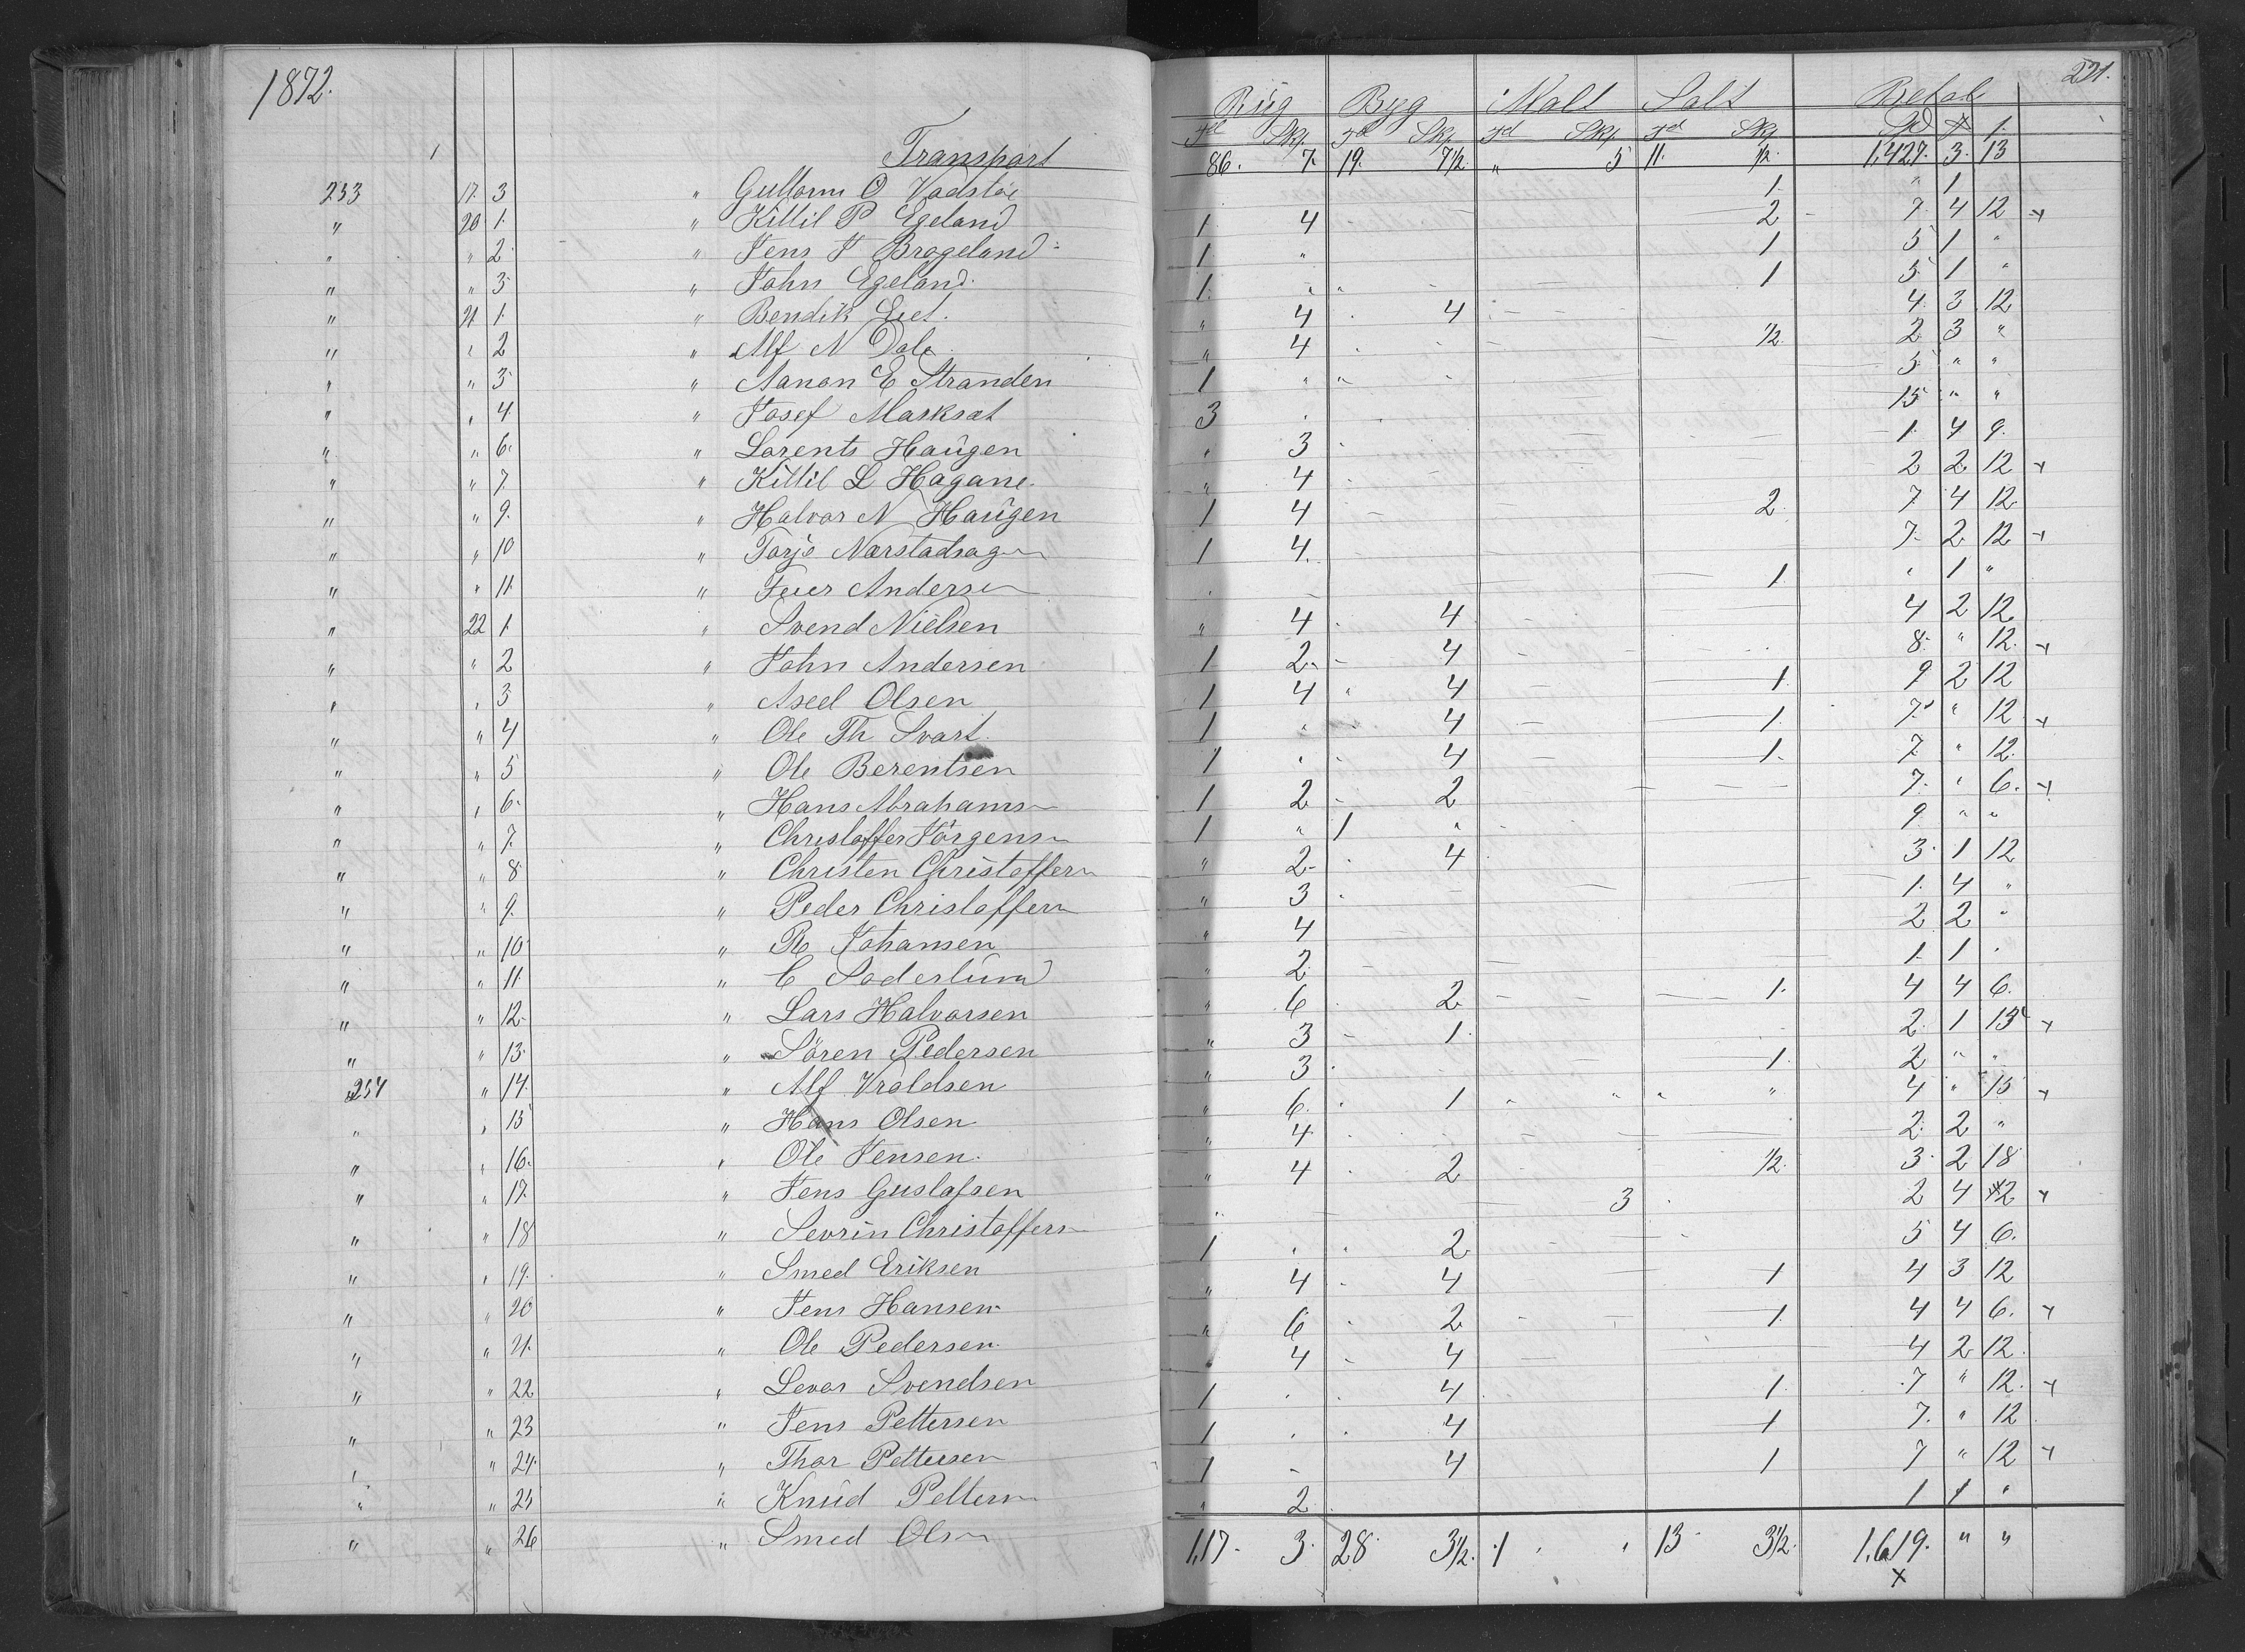 1872. 221.
Rüg Byg Malt Salt Betal
Td Skp. Td Skp. Td Skp. Td Skp. Spd
Transport 86. 7. 19. 7½. " 5 11. ½. 1,427. 3. 13
253 17. 3 " Guttorm O Vadstöe 1. " 1
" 20 1. " Kittil P Egeland 1 4 2 7. 4 12
" " 2. " Jens J Brageland 1 " 1 5 1 "
" " 3. " John Egeland. 1. " 1 5. 1 "
" 21 1. " Bendik Eiet. " 4 4 4. 3 12
" " 2 " Alf N Dale " 4 ½. 2 3 "
" " 3. " Aanon E Stranden 1 " 5. " "
" " 4. " Josef Marksæt 3 15 " "
" " 6. " Lorents Haugen " 3 1. 4 9.
" " 7. " Kittil L Hagane. " 4 2 2 12
" " 9. " Halvor N Haugen 1 4 2. 7 4 12.
" " 10 " Torje 1 4. 7. 2 12
" " 11. " Andersen 1. " 1 "
" 22 1. " Svend Nielsen " 4 4 4 2 12.
" " 2 " John Andersen 1 2 4 8. " 12.
" " 3 " Axel Olsen 1 4 " 4 1. 9 2 12
" " 4 " Ole Th Svart. 1 " 4 1. 7. " 12
" " 5 " Ole Berentsen 1 " 4 1. 7. " 12.
" " 6. " Hans Abrahams 1 2 2 7. " 6.
" " 7. " Christoffer Jörgens 1 " 1 " 9. " "
" " 8 " Christen Christoffers " 2 4 3. 1 12
" " 9. " Peder Christoffers " 3 1. 4 "
" " 10 " R Johansen " 4 2 2 "
" " 11. " C Soderlund " 2 1 1 "
" " 12. " Lars Halvorsen " 6 2 1. 4 4 6.
" " 13. " Sören Pedersen " 3 1. 2. 1 15
254 " 14. " Alf Vroldsen " 3 1. 2 " "
" " 15 " Hans Olsen " 6. 1 " " " " 4 " 15
" " 16. " Ole Jensen. " 4 2. 2 "
" " 17. " Jens Gustafsen " 4 2 ½. 3. 2 18
" " 18 " Sevrin Christoffers " 3 2 4 12
" " 19. " Smed Eriksen 1 " " 2 5 4 6.
" " 20 " Jens Hansen " 4 4 1 4 3 12
" " 21. " Ole Pedersen. " 6 2 1. 4 4 6.
" " 22 " Levor Svendsen " 4 4 4 2 12.
" " 23 " Jens Pettersen 1 4 1. 7 " 12.
" " 24. " Thor Pettersen 1 4 1 7. " 12
" " 25 " Knud Petters 1 4 1 7 " 12
" " 26 " Smed Olsn " 2 1 1 "
1,17. 3. 28. 3½. 1 " 13 3½. 1,619. " "
x